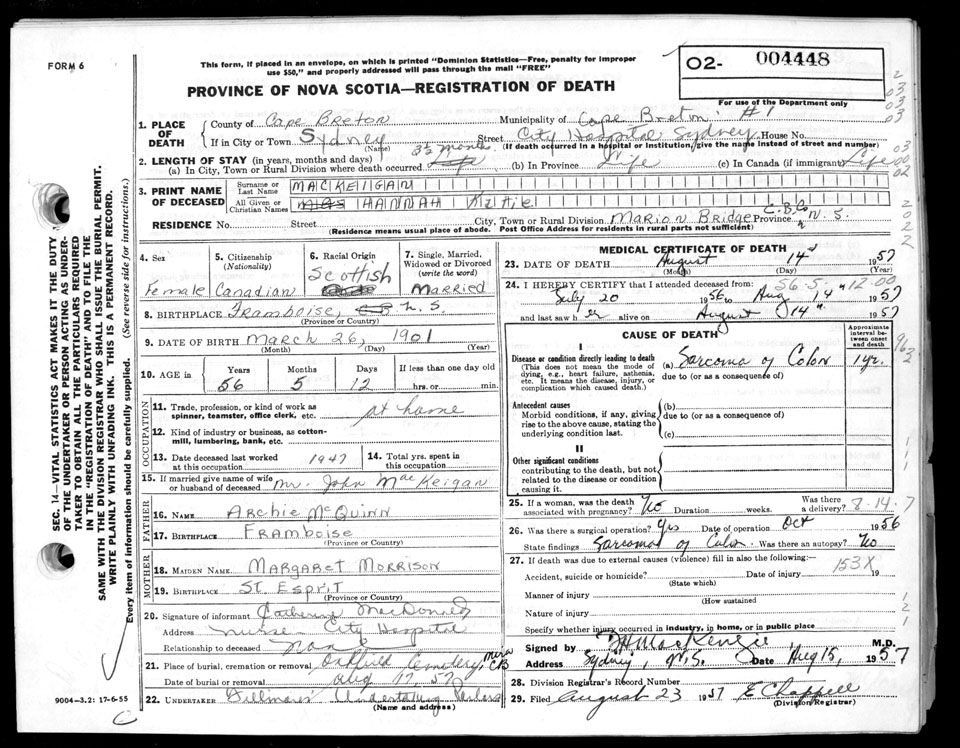 FORM 6
This form, if placed in an envelope, on which is printed "Dominion Statistics—Free, penalty for improper
use $50," and properly addressed will pass through the mail "FREE"
PROVINCE OF NOVA SCOTIA—REGISTRATION OF DEATH
O2- 004448
For use of the Department only
1. PLACE OF DEATH
County of Cape Breton Municipality of Cape Breton #1
If in City or Town Sydney Street City Hospital Sydney House No.
(Name) (If death occurred in a hospital or institution, give the name instead of street and number)
2. LENGTH OF STAY (in years, months and days) 3½ months
(a) In City, Town or Rural Division where death occurred Life (b) In Province Life (c) In Canada (if immigrant) Life
3. PRINT NAME OF DECEASED
Surname or Last Name MACKEIGAN
All Given or Christian Names MRS HANNAH Katie
RESIDENCE No. Street City, Town or Rural Division Marion Bridge C.B.Co. Province N.S.
(Residence means usual place of abode. Post Office Address for residents in rural parts not sufficient)
4. Sex Female
5. Citizenship (Nationality) Canadian
6. Racial Origin Scottish
7. Single, Married, Widowed or Divorced (write the word) Married
8. BIRTHPLACE Framboise, N.S.
(Province or Country)
9. DATE OF BIRTH March 26, 1901
(Month) (Day) (Year)
10. AGE in Years 56 Months 5 Days 12 If less than one day old hrs. or min.
OCCUPATION
11. Trade, profession, or kind of work as spinner, teamster, office clerk, etc. at home
12. Kind of industry or business, as cotton-mill, lumbering, bank, etc.
13. Date deceased last worked at this occupation 1947
14. Total yrs. spent in this occupation
15. If married give name of wife or husband of deceased Mr. John MacKeigan
FATHER
16. NAME Archie McQuinn
17. BIRTHPLACE Framboise
(Province or Country)
MOTHER
18. MAIDEN NAME Margaret Morrison
19. BIRTHPLACE St. Esprit
(Province or Country)
20. Signature of informant Catherine MacDonald
Address Nurse City Hospital
Relationship to deceased None
21. Place of burial, cremation or removal Oakfield Cemetery, Mira CB
Date of burial or removal Aug 17, 57
22. UNDERTAKER Dillman's Undertaking Parlors
(Name and address)
MEDICAL CERTIFICATE OF DEATH
23. DATE OF DEATH August 14 1957
(Month) (Day) (Year)
24. I HEREBY CERTIFY that I attended deceased from: 56-5-12.00
July 20 1956 to Aug 14 1957
and last saw her alive on August 14 1957
CAUSE OF DEATH
Approximate interval between onset and death
I
Disease or condition directly leading to death
(This does not mean the mode of dying, e.g., heart failure, asthenia, etc. It means the disease, injury, or complication which caused death.)
(a) Sarcoma of Colon 1 yr.
due to (or as a consequence of)
Antecedent causes
Morbid conditions, if any, giving rise to the above cause, stating the underlying condition last.
(b)
due to (or as a consequence of)
(c)
II
Other significant conditions
contributing to the death, but not related to the disease or condition causing it.
25. If a woman, was the death associated with pregnancy? No Duration weeks. Was there a delivery? 8-14-7
26. Was there a surgical operation? Yes Date of operation Oct 1956
State findings Sarcoma of Colon. Was there an autopsy? No
27. If death was due to external causes (violence) fill in also the following:
Accident, suicide or homicide? Date of injury 153X 19
(State which)
Manner of injury
(How sustained)
Nature of injury
Specify whether injury occurred in industry, in home, or in public place
Signed by MacKenzie M.D.
Address Sydney, N.S. Date Aug 15, 1957
28. Division Registrar's Record Number
29. Filed August 23 1957 E Chappell
(Division Registrar)
SEC. 14—VITAL STATISTICS ACT MAKES IT THE DUTY
OF THE UNDERTAKER OR PERSON ACTING AS UNDER-
TAKER TO OBTAIN ALL THE PARTICULARS REQUIRED
IN THE "REGISTRATION OF DEATH" AND TO FILE THE
SAME WITH THE DIVISION REGISTRAR WHO SHALL ISSUE THE BURIAL PERMIT.
WRITE PLAINLY WITH UNFADING INK. THIS IS A PERMANENT RECORD.
Every item of information should be carefully supplied. (See reverse side for instructions.)
9004—3.2: 17-6-55